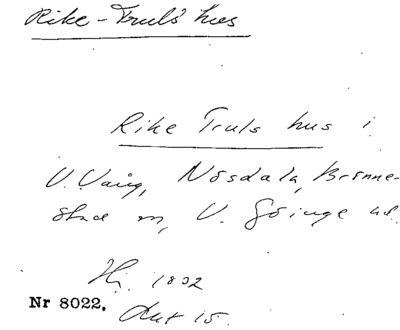 Rike-Truls' hus
Rike Truls hus i
V. Vång, Nösdala, Brönne-
stad sn, V. Göinge hd.
1892
Nr 8022.